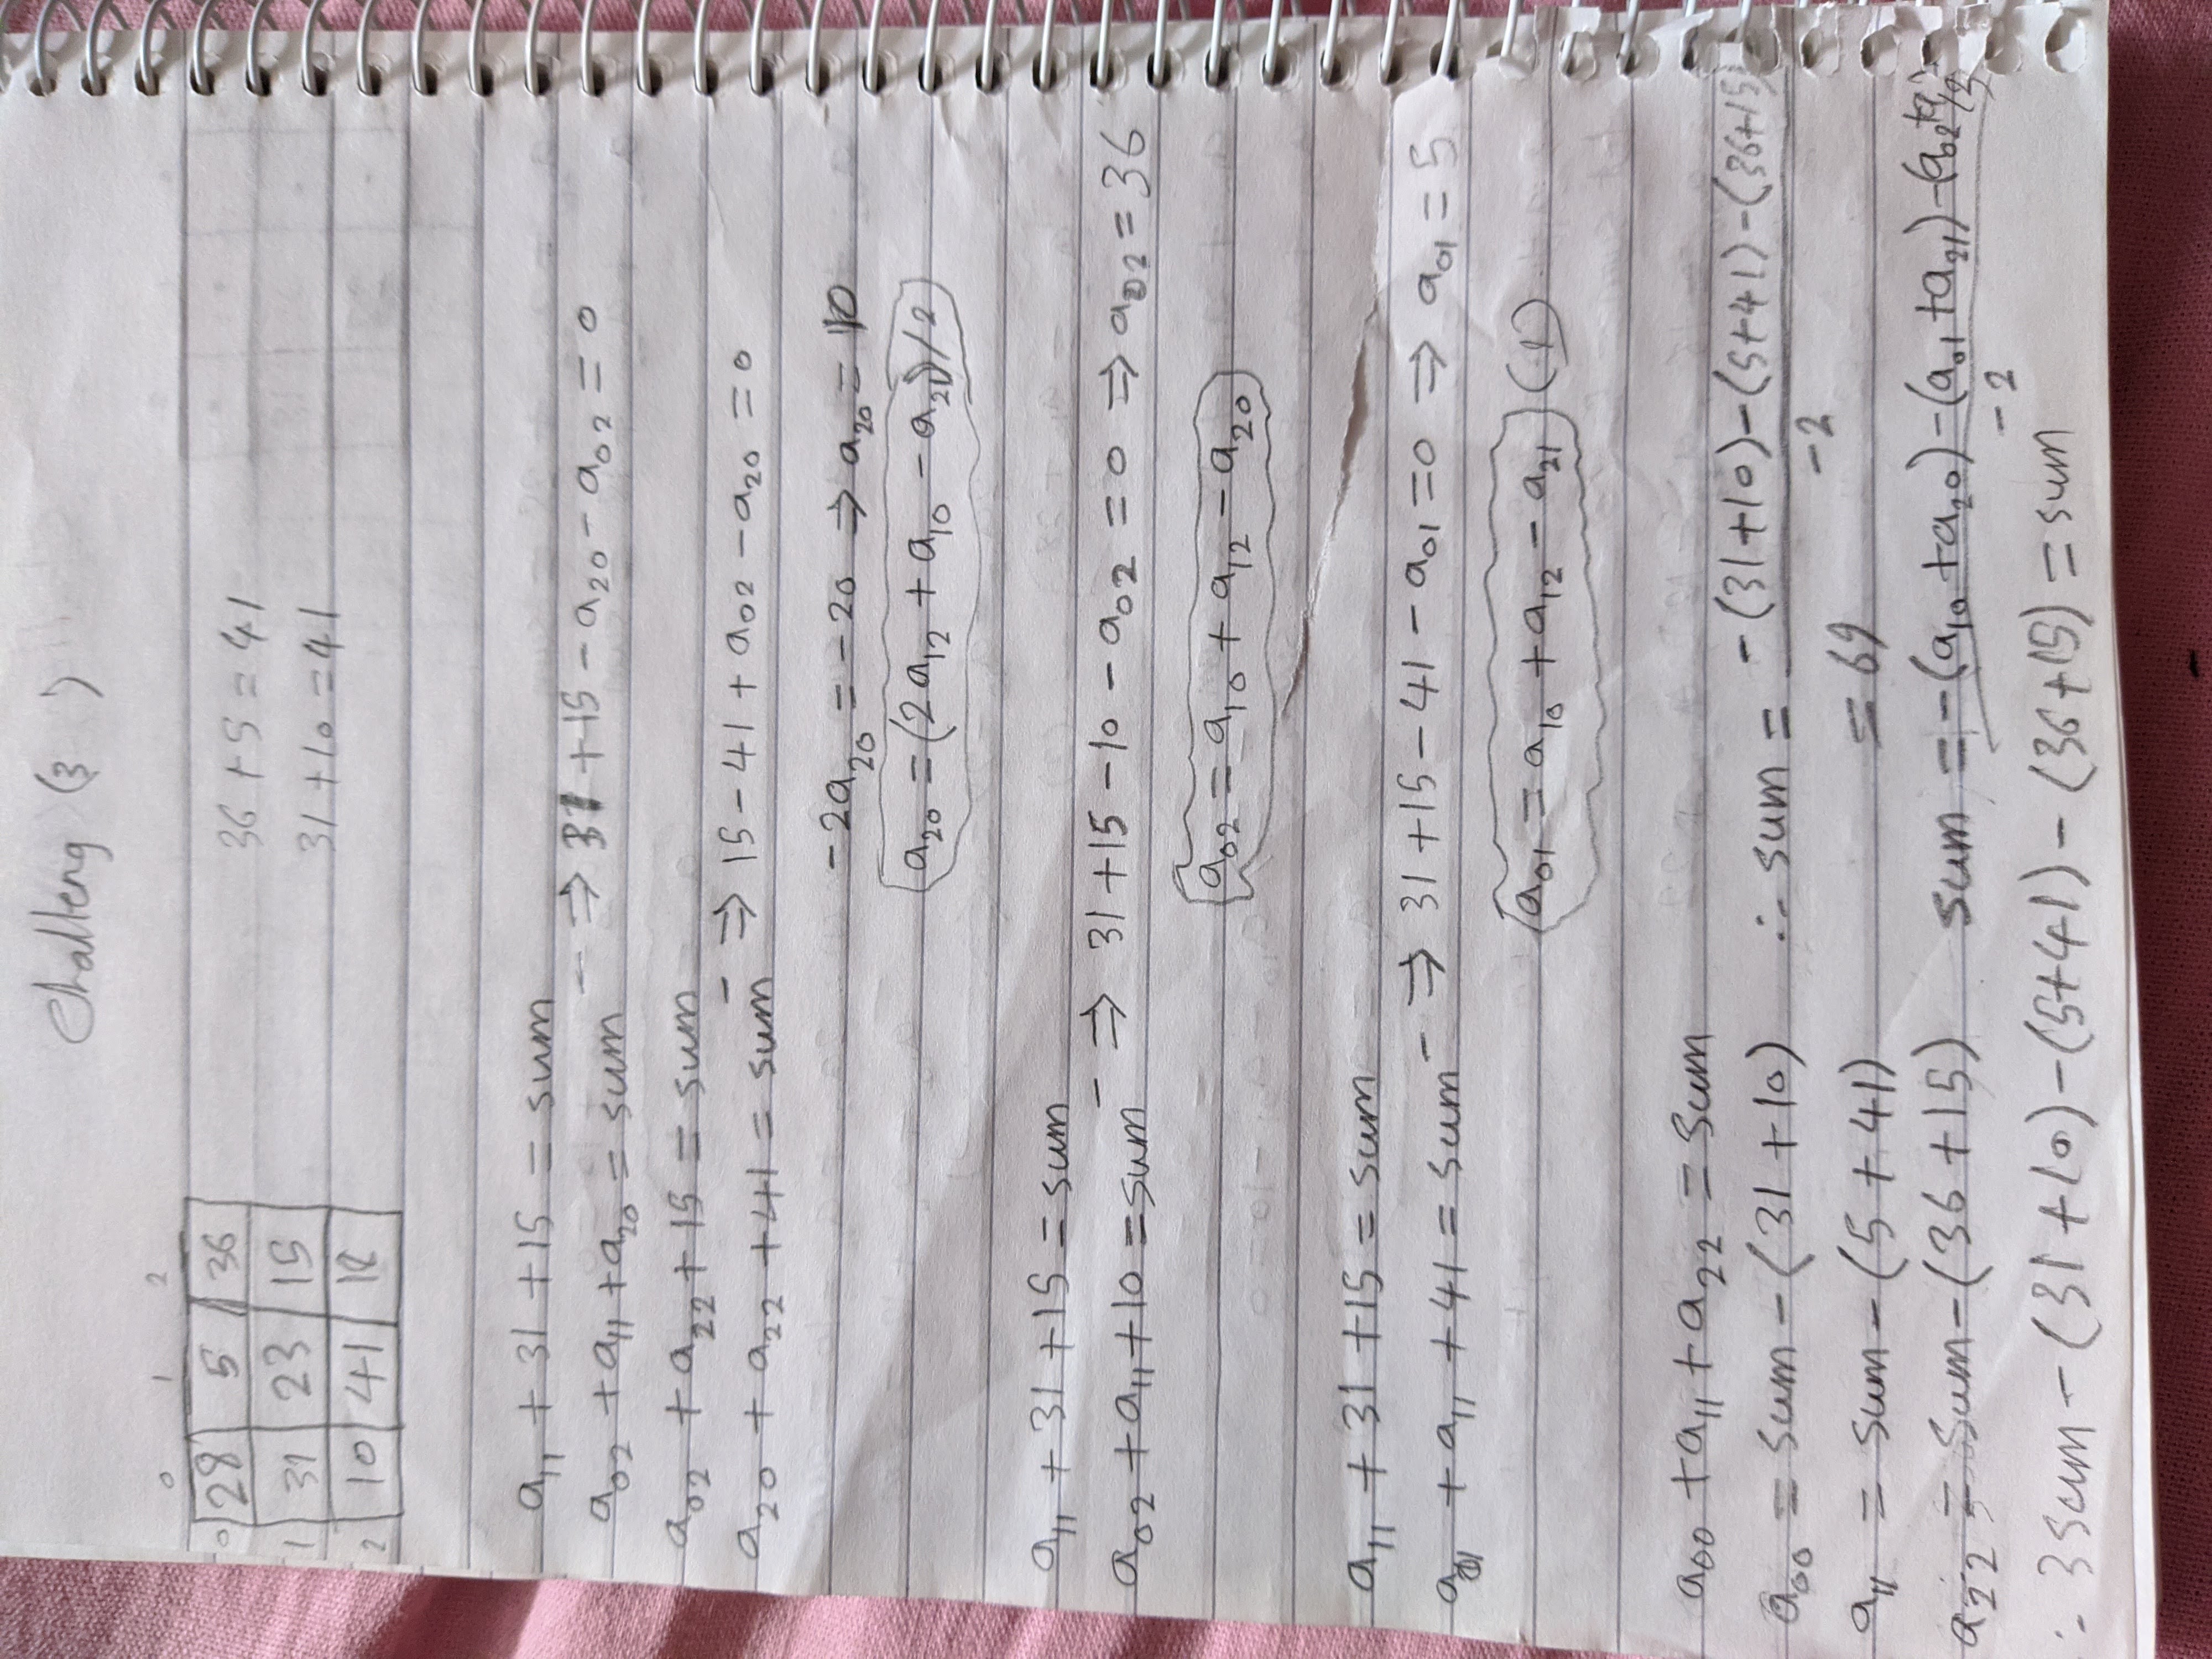 Challeng (3 )
0 1 2
0 28 5 36
36 + 5 = 41
1 31 23 15
31 + 10 = 41
2 10 41 18
a₁₁ + 31 + 15 = sum
a₀₂ + a₁₁ + a₂₀ = sum - ⇒ 31 + 15 - a₂₀ - a₀₂ = 0
a₀₂ + a₂₂ + 15 = sum
a₂₀ + a₂₂ + 41 = sum - ⇒ 15 - 41 + a₀₂ - a₂₀ = 0
-2a₂₀ = -20 ⇒ a₂₀ = 10
a₂₀ = (2a₁₂ + a₁₀ - a₂₁)/2
a₁₁ + 31 + 15 = sum
a₀₂ + a₁₁ + 10 = sum - ⇒ 31 + 15 - 10 - a₀₂ = 0 ⇒ a₀₂ = 36
a₀₂ = a₁₀ + a₁₂ - a₂₀
a₁₁ + 31 + 15 = sum
a₀₁ + a₁₁ + 41 = sum - ⇒ 31 + 15 - 41 - a₀₁ = 0 ⇒ a₀₁ = 5
a₀₁ = a₁₀ + a₁₂ - a₂₁ (1)
a₀₀ + a₁₁ + a₂₂ = sum
a₀₀ = sum - (31 + 10) ∴ sum = -(31+10)-(5+41)-(36+15)
-2
a₁₁ = sum - (5 + 41) = 69
a₂₂ = sum - (36 + 15) sum = -(a₁₀ + a₂₀) - (a₀₁ + a₂₁) - (a₀₂ + a₁₂)
-2
∴ 3sum - (31 + 10) - (5+41) - (36+15) = sum